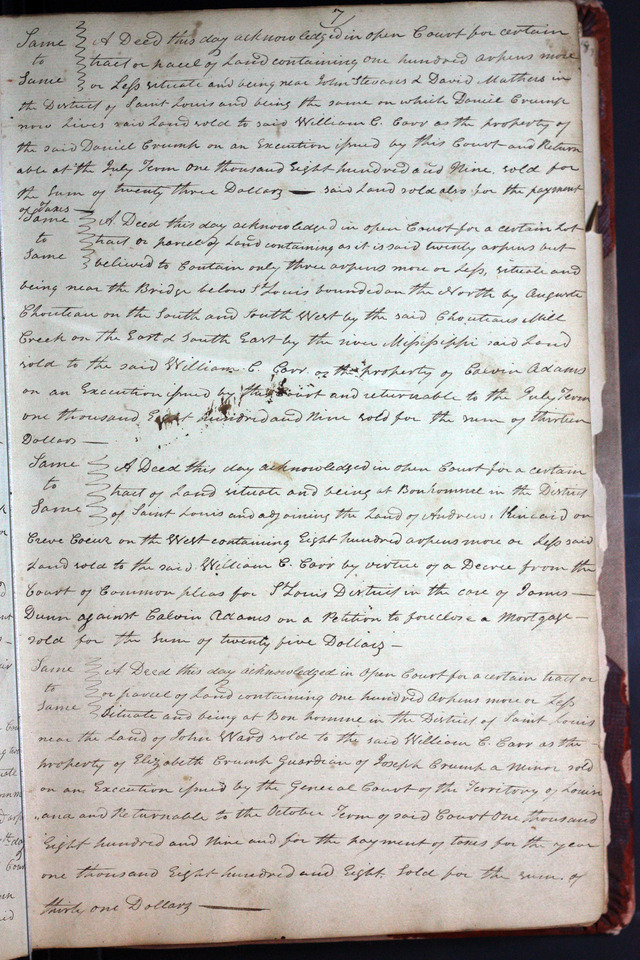 7
Same } A Deed this day acknowledged in open Court for certain
to } tract or parcel of Land containing one hundred arpens more
Same } or Less situate and being near John Stevens & David Mathews in
the District of Saint Louis and being the same on which Daniel Crump
now lives said Land sold to said William C. Carr as the property of
the said Daniel Crump on an Execution issued by this Court and Return
able at the July Term one thousand Eight hundred and Nine, sold for
the Sum of twenty three Dollars — said Land sold also for the payment
of Taxes —
Same } A Deed this day acknowledged in open Court for a certain Lot
to } tract or parcel of Land containing as it is said twenty arpens but
Same } believed to Contain only three arpens more or Less, situate and
being near the Bridge below St Louis bounded on the North by Auguste
Chouteau on the South and South West by the said Chouteaus Mill
Creek on the East & South East by the river Missisippi said Land
sold to the said William C. Carr as the property of Calvin Adams
on an Execution issued by this Court and returnable to the July Term
one thousand Eight hundred and Nine sold for the sum of thirteen
Dollars —
Same } A Deed this day acknowledged in open Court for a certain
to } tract of Land situate and being at Bonhomme in the District
Same } of Saint Louis and adjoining the Land of Andrew Kincaid on
Creve Coeur on the West containing Eight hundred arpens more or Less said
Land sold to the said William C. Carr by virtue of a Decree from the
Court of Common pleas for St Louis District in the case of James —
Dunn against Calvin Adams on a Petition to foreclose a Mortgage —
sold for the sum of twenty five Dollars —
Same } A Deed this day acknowledged in Open Court for a certain tract or
to } or parcel of Land containing one hundred Arpens more or Less
Same } Situate and being at Bon homme in the District of Saint Louis
near the Land of John Ward sold to the said William C. Carr as the
property of Elizabeth Crump Guardian of Joseph Crump a Minor sold
on an Execution issued by the General Court of the Territory of Louisi
ana and Returnable to the October Term of said Court One thousand
Eight hundred and Nine and for the payment of taxes for the year
one thousand Eight hundred and Eight. Sold for the sum of
thirty one Dollars —